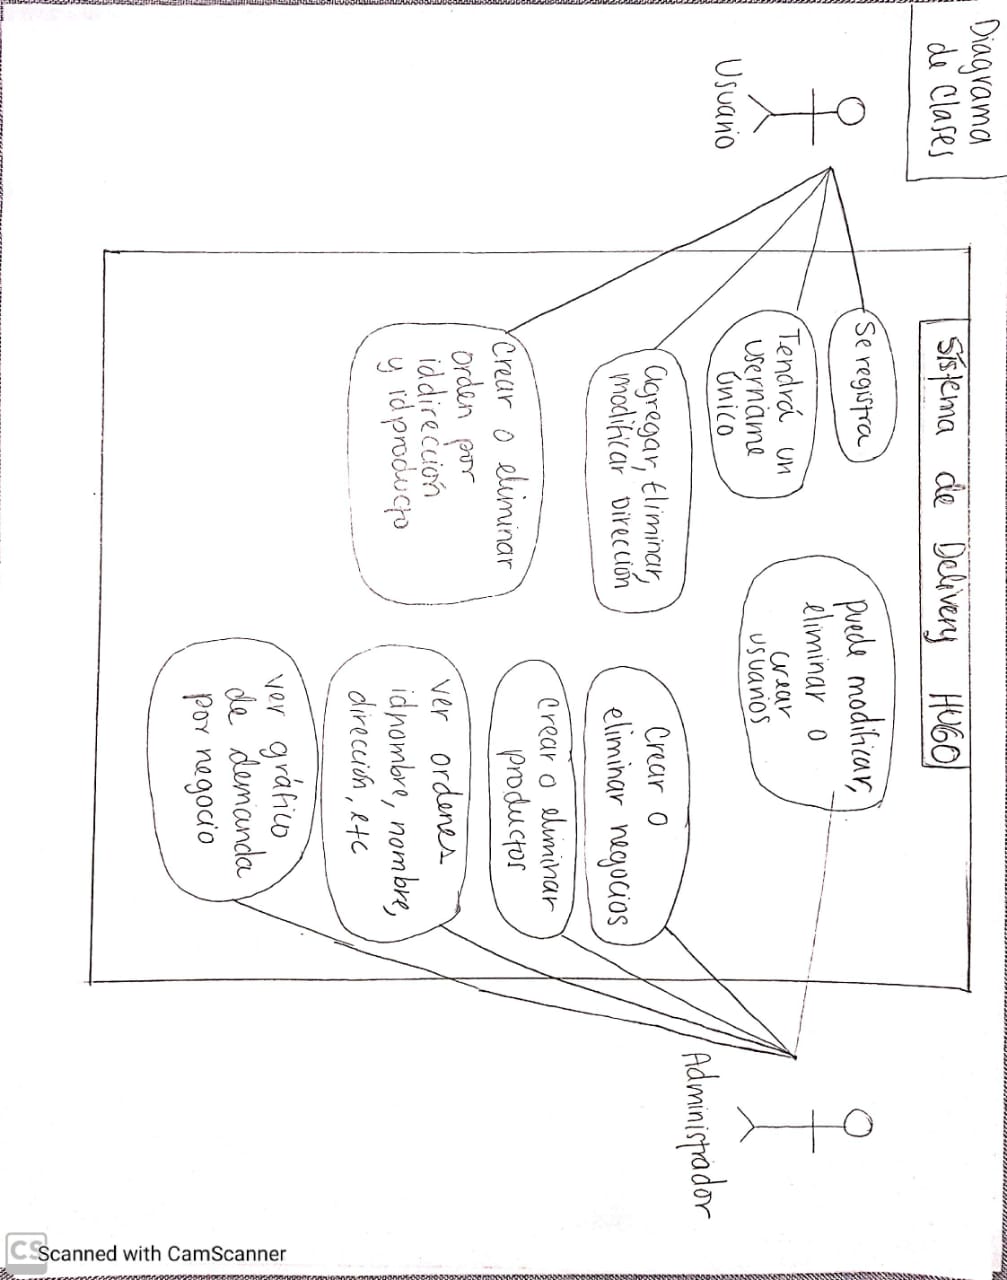 Diagrama
de Clases
Sistema de Delivery HUGO
Usuario
Se registra
Tendrá un
username
único
agregar, Eliminar,
modificar Dirección
Crear o eliminar
orden por
iddirección
y idproducto
puede modificar,
eliminar o
crear
usuarios
Crear o
eliminar negocios
Crear o eliminar
productos
ver ordenes
idnombre, nombre,
dirección, etc
ver gráfico
de demanda
por negocio
Administrador
CS Scanned with CamScanner